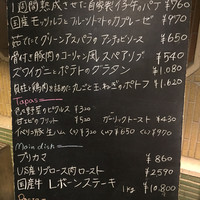 1週間熟成させた自家製仔羊のパテ ¥760
国産モッツァレラとフルーツトマトのカプレーゼ ¥970
茹でたてグリーンアスパラの アンチョビソース ¥650
骨付き豚肉のコーリャン風スペアリブ ¥540
ズワイガニとポテトのグラタン ¥1,080
貝柱と鶏肉を詰めた丸ごと玉ねぎのポトフ ¥1,620
Tapas
色々野菜のピクルス ¥320
甘エビのフリット ¥520 ガーリックトースト ¥430
イベリコ豚生ハム (S) ¥ (M) ¥650 (L) ¥970
Main dish
プリカマ ¥860
US産リブロース肉ロースト ¥2590
国産牛Lボーンステーキ 1kg ¥10,800